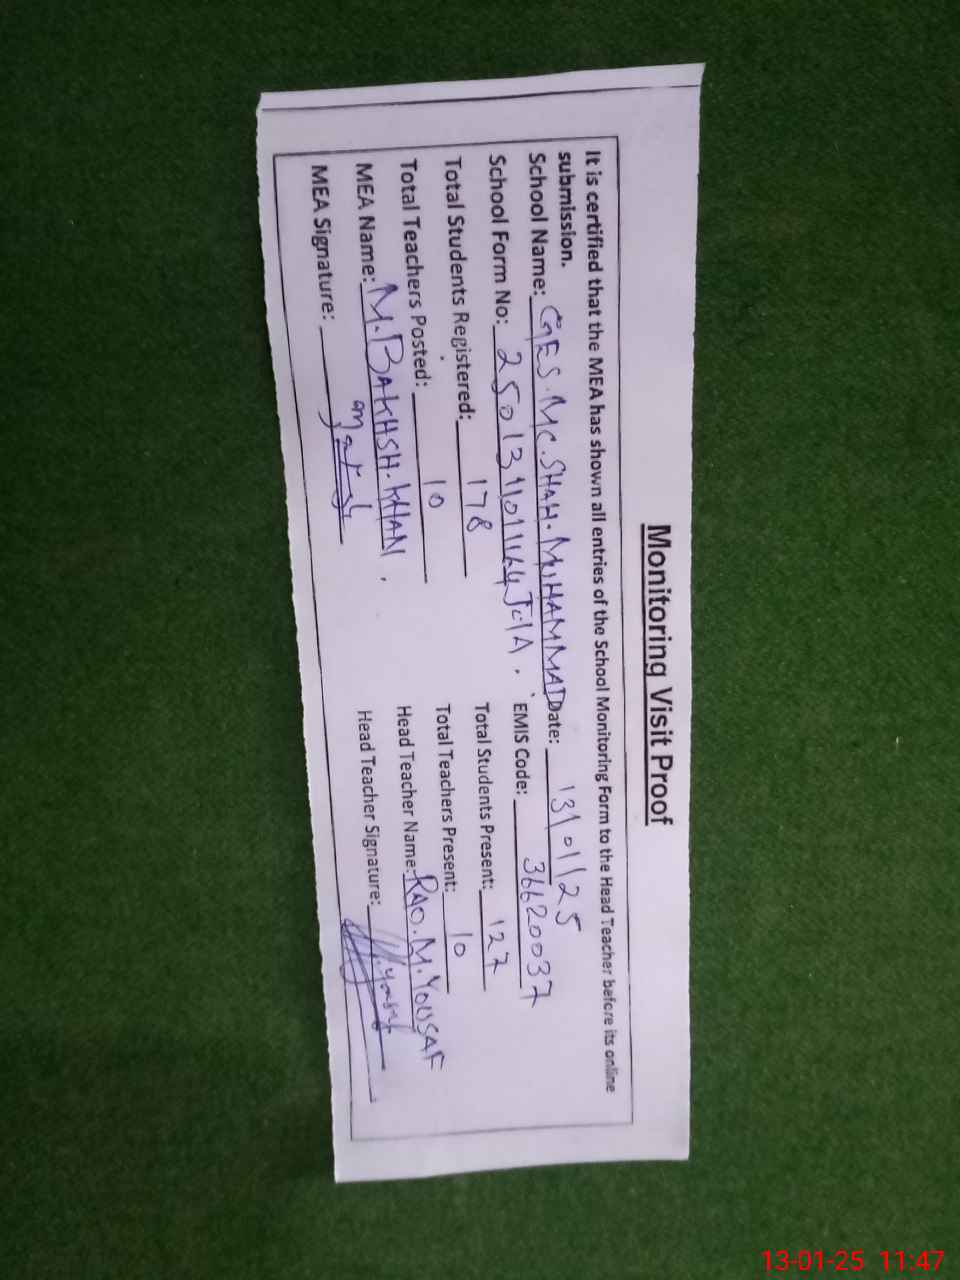 Monitoring Visit Proof
It is certified that the MEA has shown all entries of the School Monitoring Form to the Head Teacher before its online
submission.
School Name: GES.MC.SHAH.MUHAMMAD Date: 13/01/25
School Form No: EMIS Code: 36620037
Total Students Registered: 178 Total Students Present: 127
Total Teachers Posted: 10 Total Teachers Present: 10
MEA Name: M.BAKHSH.KHAN. Head Teacher Name: RAO.M.YOUSAF
MEA Signature: Head Teacher Signature:
13-01-25 11:47